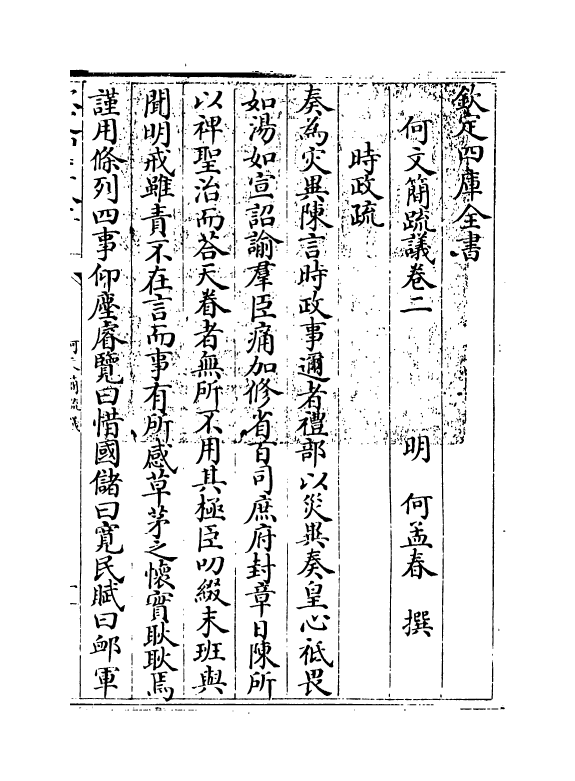 欽定四庫全書
何文簡疏議卷二
明 何孟春 撰
時政疏
奏為灾異陳言時政事邇者禮部以災異奏皇心祗畏
如湯如宣詔諭羣臣痛加修省百司庶府封章日陳所
以裨聖治而荅天眷者無所不用其極臣叨綴末班與
聞明戒雖責不在言而事有所感草茅之懷實耿耿焉
謹用條列四事仰塵睿覽曰惜國儲曰寛民賦曰䘏軍